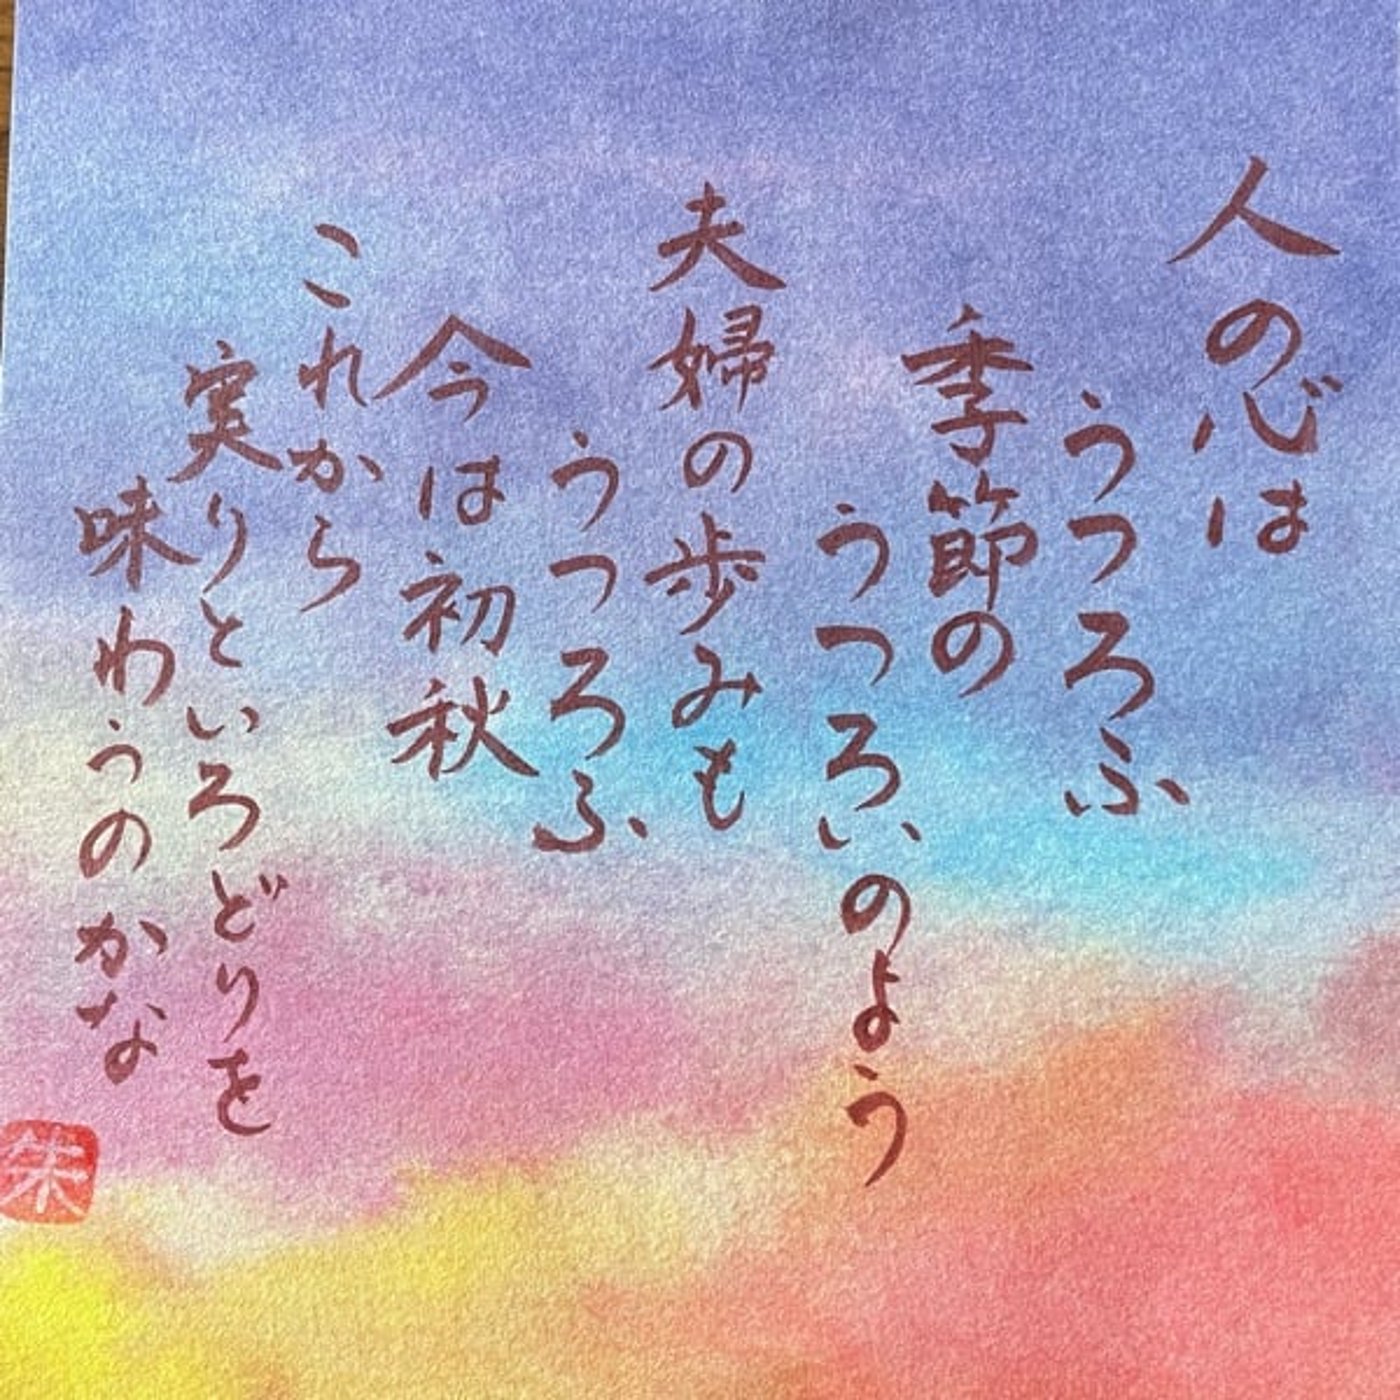 人の心は
うつろふ
季節の
うつろいのよう
夫婦の歩みも
うつろふ
今は初秋
これから
実りといろどりを
味わうのかな
朱